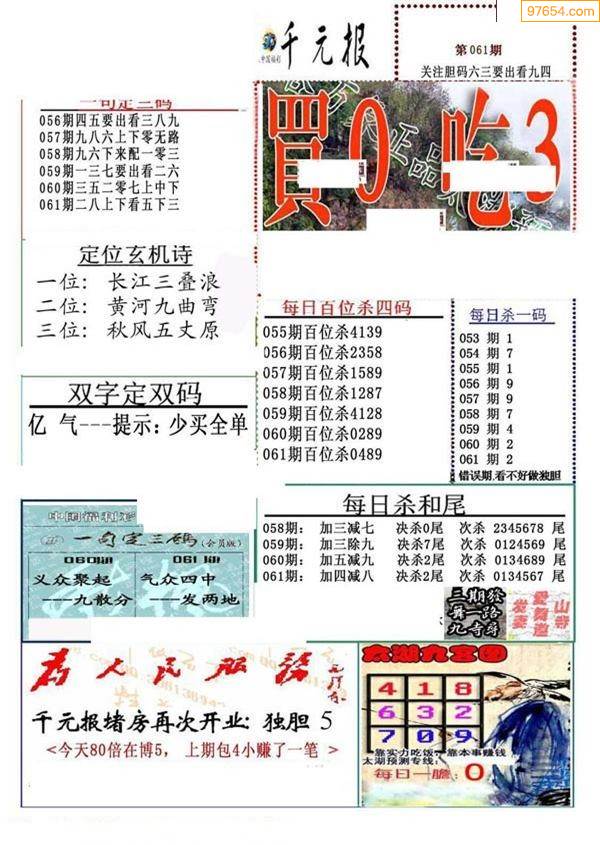 97654.com
千元报
第061期
关注胆码六三要出看九四
一句定三码
056期四五要出看三八九
057期九八六上下零无路
058期九六下来配一零三
059期一三七要出看二六
060期三五二零七上中下
061期二八上下看五下三
買0吃3
定位玄机诗
一位: 长江三叠浪
二位: 黄河九曲弯
三位: 秋风五丈原
每日百位杀四码
055期百位杀4139
056期百位杀2358
057期百位杀1589
058期百位杀1287
059期百位杀4128
060期百位杀0289
061期百位杀0489
每日杀一码
053 期 1
054 期 7
055 期 1
056 期 9
057 期 9
058 期 7
059 期 4
060 期 2
061 期 2
错误期,看不好做独胆
双字定双码
亿 气---提示: 少买全单
每日杀和尾
058期: 加三减七 决杀0尾 次杀 2345678 尾
059期: 加三除九 决杀7尾 次杀 0124569 尾
060期: 加五减九 决杀2尾 次杀 0134689 尾
061期: 加四减八 决杀2尾 次杀 0134567 尾
一句定三码(会员版)
060期
义众聚起
----九散分
061期
气众四中
----发两地
三期發
舞一路
九寺尋
山寺
为人民服务
千元报堵房再次开业: 独胆 5
<今天80倍在博5, 上期包4小赚了一笔 >
太湖九宫图
4 1 8
6 3 2
7 0 9
靠实力吃饭,靠本事赚钱
太湖预测专线:
每日一胆: 0